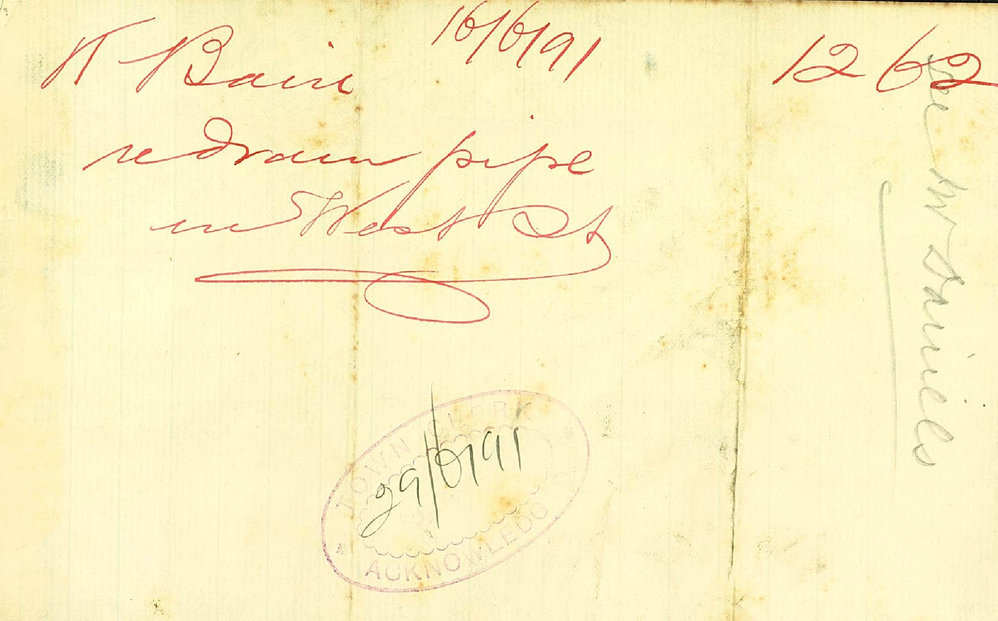 16/6/91
1262
Bain
re drain pipe
in West St
See Mr Daniells
TOWN CLERK
29/6/91
ACKNOWLEDG